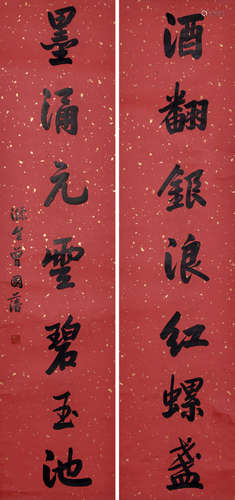 酒翻銀浪紅螺盞
墨涌元雲碧玉池
滌生曾國藩